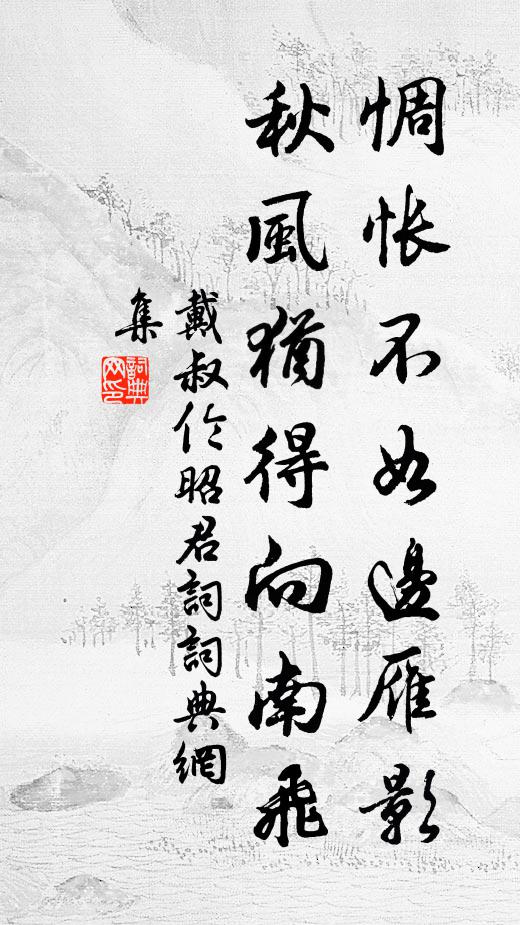 惆悵不如邊雁影
秋風猶得向南飛
戴叔伦昭君詞詞典網
集
詞典
网印